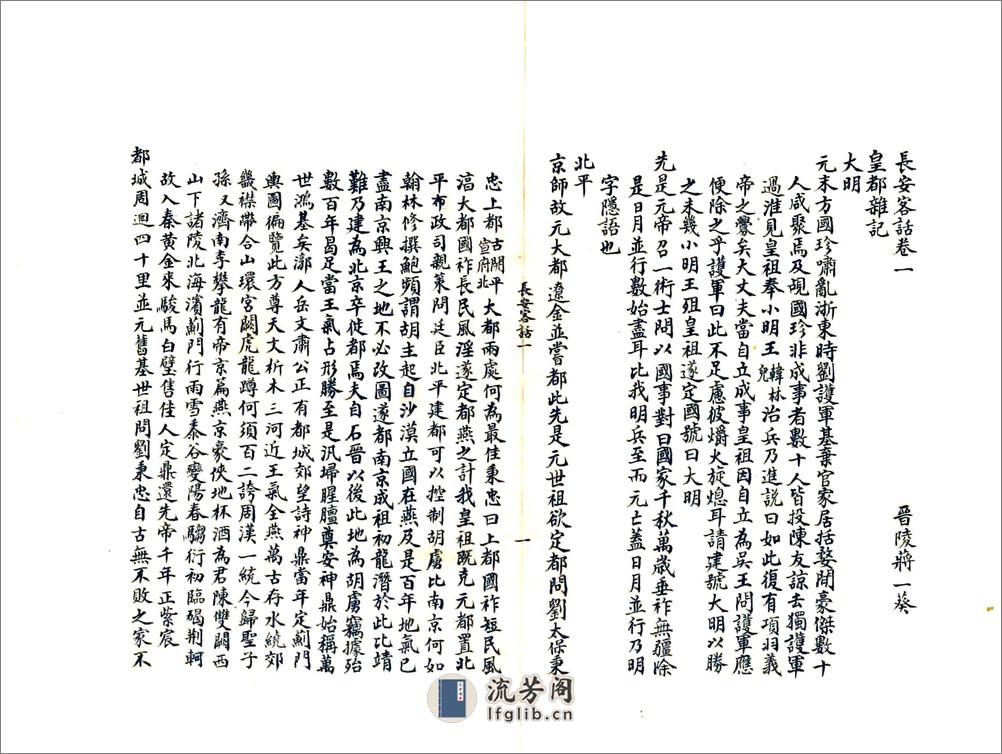 長安客話卷一
晋陵蔣一葵
皇都雜記
大明
元末方國珍嘯亂浙東時劉護軍基棄官家居括婺間豪傑數十
人咸聚焉及硯國珍非成事者數十人皆投陳友諒去獨護軍
過淮見皇祖奉小明王韓林兒治兵乃進説曰如此復有項羽義
帝之釁矣大丈夫當自立成事皇祖因自立為吴王問護軍應
便除之乎護軍曰此不足慮彼爝火旋熄耳請建號大明以勝
之未幾小明王殂皇祖遂定國號曰大明
先是元帝召一術士問以國事對曰國家千秋萬歲垂祚無疆除
是日月並行數始盡耳比我明兵至而元亡蓋日月並行乃明
字隱語也
北平
京師故元大都遼金並嘗都此先是元世祖欲定都問劉太保秉
長安客話一
一
忠上都古開平宣府北大都兩處何為最佳秉忠曰上都國祚短民風
淳大都國祚長民風淫遂定都燕之計我皇祖既克元都置北
平布政司親策問廷臣北平建都可以控制胡虜比南京何如
翰林修撰鮑頻謂胡主起自沙漠立國在燕及是百年地氣已
盡南京興王之地不必改圖遂都南京成祖初龍潛於此比靖
難乃建為北京卒徙都焉夫自石晋以後此地為胡虜竊據殆
數百年曷足當王氣占形勝至是汛埽腥膻奠安神鼎始稱萬
世鴻基矣漷人岳文肅公正有都城郊望詩神鼎當年定薊門
輿圖徧覽此方尊天文析木三河近王氣全燕萬古存水繞郊
畿襟帶合山環宮闕虎龍蹲何須百二誇周漢一統今歸聖子
孫又濟南李攀龍有帝京篇燕京豪俠地杯酒為君陳雙闕西
山下諸陵北海濱薊門行雨雪黍谷變陽春騶衍初臨碣荆軻
故入秦黄金來駿馬白璧售佳人定鼎還先帝千年正紫宸
都城周迴四十里並元舊基世祖問劉秉忠自古無不敗之家不
流芳阁
lfglib.cn